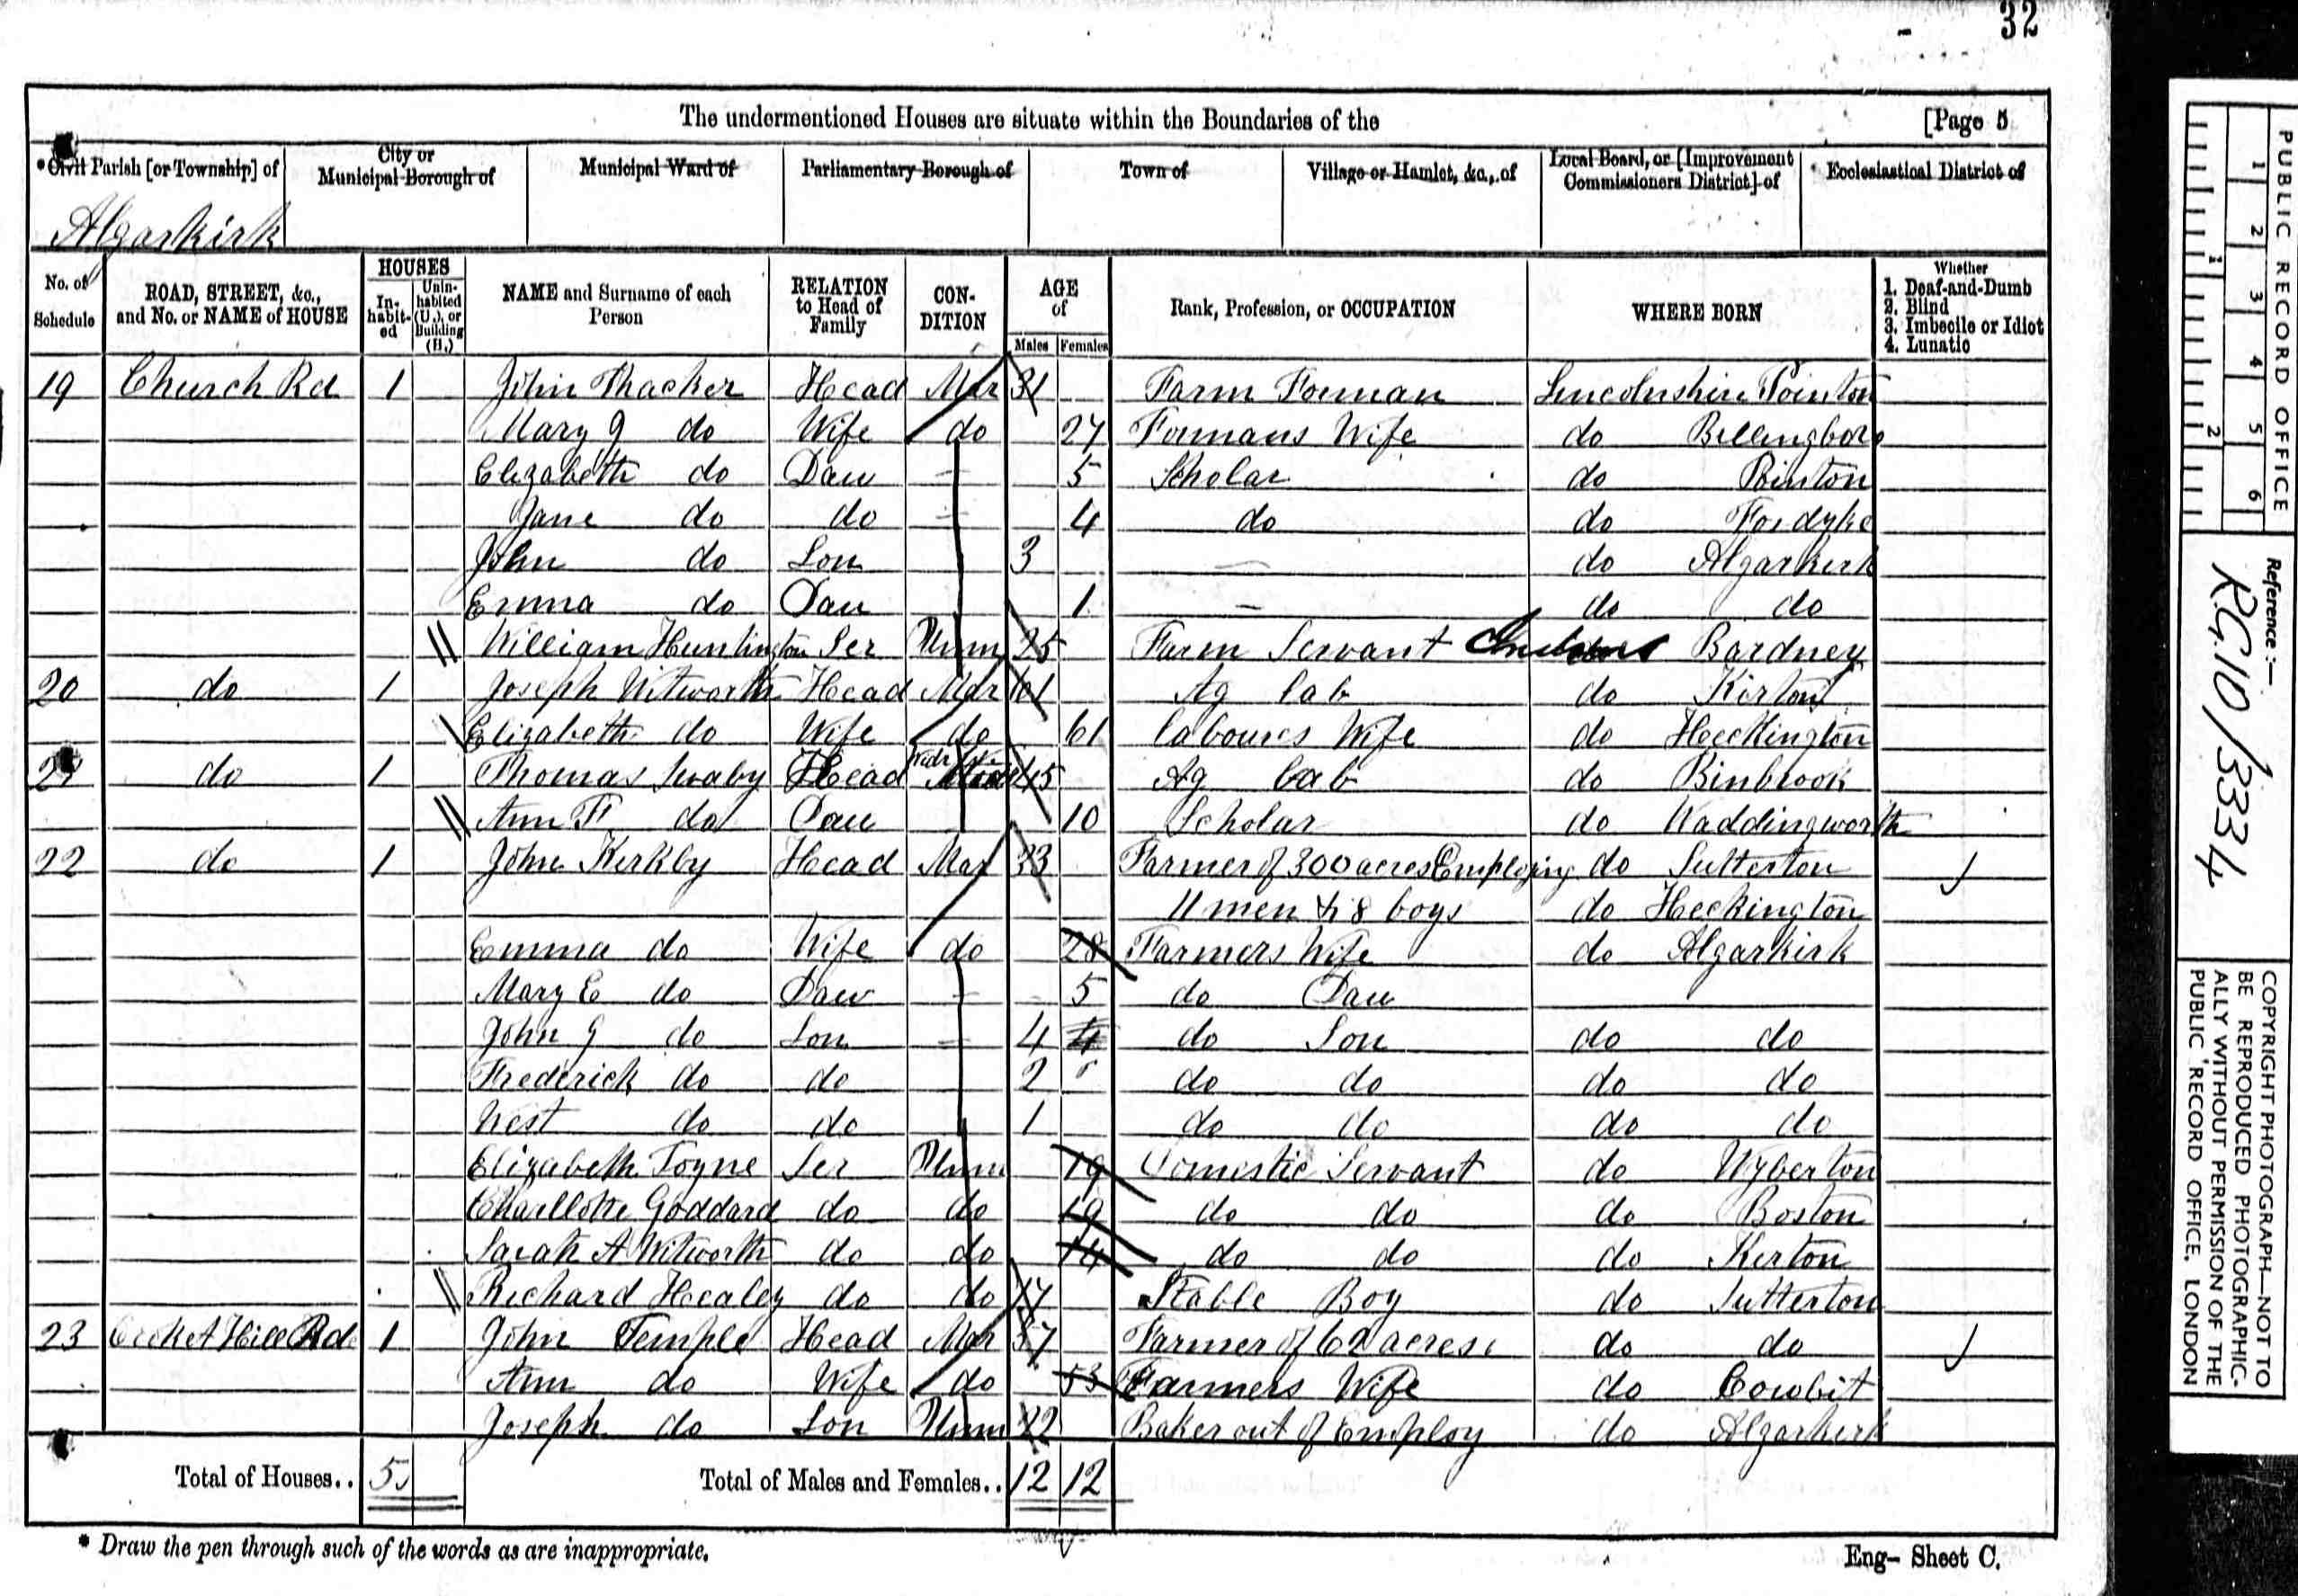 32
The undermentioned Houses are situate within the Boundaries of the [Page 5
* Civil Parish [or Township] of | City or Municipal Borough of | Municipal Ward of | Parliamentary Borough of | Town of | Village or Hamlet, &c., of | Local Board, or [Improvement Commissioners District] of | Ecclesiastical District of
Algarkirk
No. of Schedule | ROAD, STREET, &c., and No. or NAME of HOUSE | HOUSES In-habit-ed | Unin-habited (U.), or Building (B.) | NAME and Surname of each Person | RELATION to Head of Family | CON-DITION | AGE of Males Females | Rank, Profession, or OCCUPATION | WHERE BORN | Whether 1. Deaf-and-Dumb 2. Blind 3. Imbecile or Idiot 4. Lunatic
19 Church Rd 1 John Thacker Head Mar 31 Farm Foreman Lincolnshire Pointon
Mary J do Wife do 27 Formans Wife do Billingboro
Elizabeth do Daw 5 Scholar do Pointon
Jane do do 4 do do Fosdyke
John do Son 3 do Algarkirk
Emma do Dau 1 do do
William Huntington Ser Unm 25 Farm Servant Bardney
20 do 1 Joseph Witworth Head Mar 61 Ag lab do Kirton
Elizabeth do Wife do 61 labours Wife do Heckington
21 do 1 Thomas Swaby Head 45 Ag lab do Binbrook
Ann F do Dau 10 Scholar do Waddingworth
22 do 1 John Kirkby Head Mar 33 Farmer of 300 acres Employing do Sutterton
11 men & 8 boys do Heckington
Emma do Wife do 28 Farmers Wife do Algarkirk
Mary E do Daw 5 do Dau
John G do Son 4 do Son do do
Frederick do do 2 do do do do
West do do 1 do do do do
Elizabeth Toyne Ser Unm 19 Domestic Servant do Wyberton
Charllotte Goddard do do 19 do do do Boston
Sarah A Witworth do do 14 do do do Kerton
Richard Healey do do 17 Stable Boy do Sutterton
23 Hill Rd 1 John Temple Head Mar 57 Farmer of 62 acres do do
Ann do Wife do 53 Farmers Wife do Cowbit
Joseph do Son Unm 22 Baker out of Employ do Algarkirk
Total of Houses.. 5 Total of Males and Females.. 12 12
* Draw the pen through such of the words as are inappropriate.
Eng- Sheet C.
PUBLIC RECORD OFFICE
1 2 3 4 5 6
1 2
Reference :-
RG.10/3334
COPYRIGHT PHOTOGRAPH—NOT TO BE REPRODUCED PHOTOGRAPHIC-ALLY WITHOUT PERMISSION OF THE PUBLIC RECORD OFFICE, LONDON